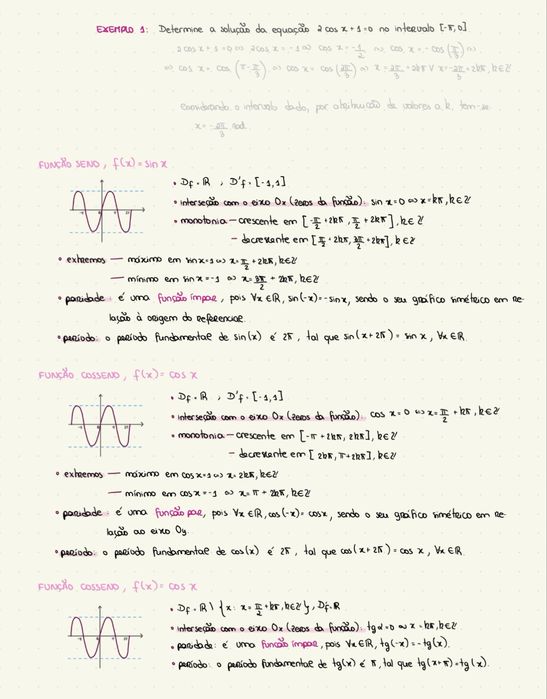 EXEMPLO 1: Determine a solução da equação 2 cos x + 1 = 0 no intervalo [-π, 0]
2 cos x + 1 = 0 ⇔ 2 cos x = -1 ⇔ cos x = -1/2 ⇔ cos x = -cos(π/3) ⇔
⇔ cos x = cos(π - π/3) ⇔ cos x = cos(2π/3) ⇔ x = 2π/3 + 2kπ ∨ x = -2π/3 + 2kπ, k ∈ ℤ
Considerando o intervalo dado, por atribuição de valores a k, tem-se
x = -2π/3 rad.
FUNÇÃO SENO, f(x) = sin x
• Df = ℝ ; D'f = [-1, 1]
• interseção com o eixo Ox (zeros da função): sin x = 0 ⇔ x = kπ, k ∈ ℤ
• monotonia — crescente em [-π/2 + 2kπ, π/2 + 2kπ], k ∈ ℤ
— decrescente em [π/2 + 2kπ, 3π/2 + 2kπ], k ∈ ℤ
• extremos — máximo em sin x = 1 ⇔ x = π/2 + 2kπ, k ∈ ℤ
— mínimo em sin x = -1 ⇔ x = 3π/2 + 2kπ, k ∈ ℤ
• paridade: é uma função ímpar, pois ∀x ∈ ℝ, sin(-x) = -sin x, sendo o seu gráfico simétrico em re-
lação à origem do referencial.
• período: o período fundamental de sin(x) é 2π, tal que sin(x + 2π) = sin x, ∀x ∈ ℝ.
FUNÇÃO COSSENO, f(x) = cos x
• Df = ℝ ; D'f = [-1, 1]
• interseção com o eixo Ox (zeros da função): cos x = 0 ⇔ x = π/2 + kπ, k ∈ ℤ
• monotonia — crescente em [-π + 2kπ, 2kπ], k ∈ ℤ
— decrescente em [2kπ, π + 2kπ], k ∈ ℤ
• extremos — máximo em cos x = 1 ⇔ x = 2kπ, k ∈ ℤ
— mínimo em cos x = -1 ⇔ x = π + 2kπ, k ∈ ℤ
• paridade: é uma função par, pois ∀x ∈ ℝ, cos(-x) = cos x, sendo o seu gráfico simétrico em re-
lação ao eixo Oy.
• período: o período fundamental de cos(x) é 2π, tal que cos(x + 2π) = cos x, ∀x ∈ ℝ.
FUNÇÃO COSSENO, f(x) = cos x
• Df = ℝ \ {x: x = π/2 + kπ, k ∈ ℤ}, Df = ℝ
• interseção com o eixo Ox (zeros da função): tg α = 0 ⇔ x = kπ, k ∈ ℤ
• paridade: é uma função ímpar, pois ∀x ∈ ℝ, tg(-x) = -tg(x).
• período: o período fundamental de tg(x) é π, tal que tg(x + π) = tg(x).